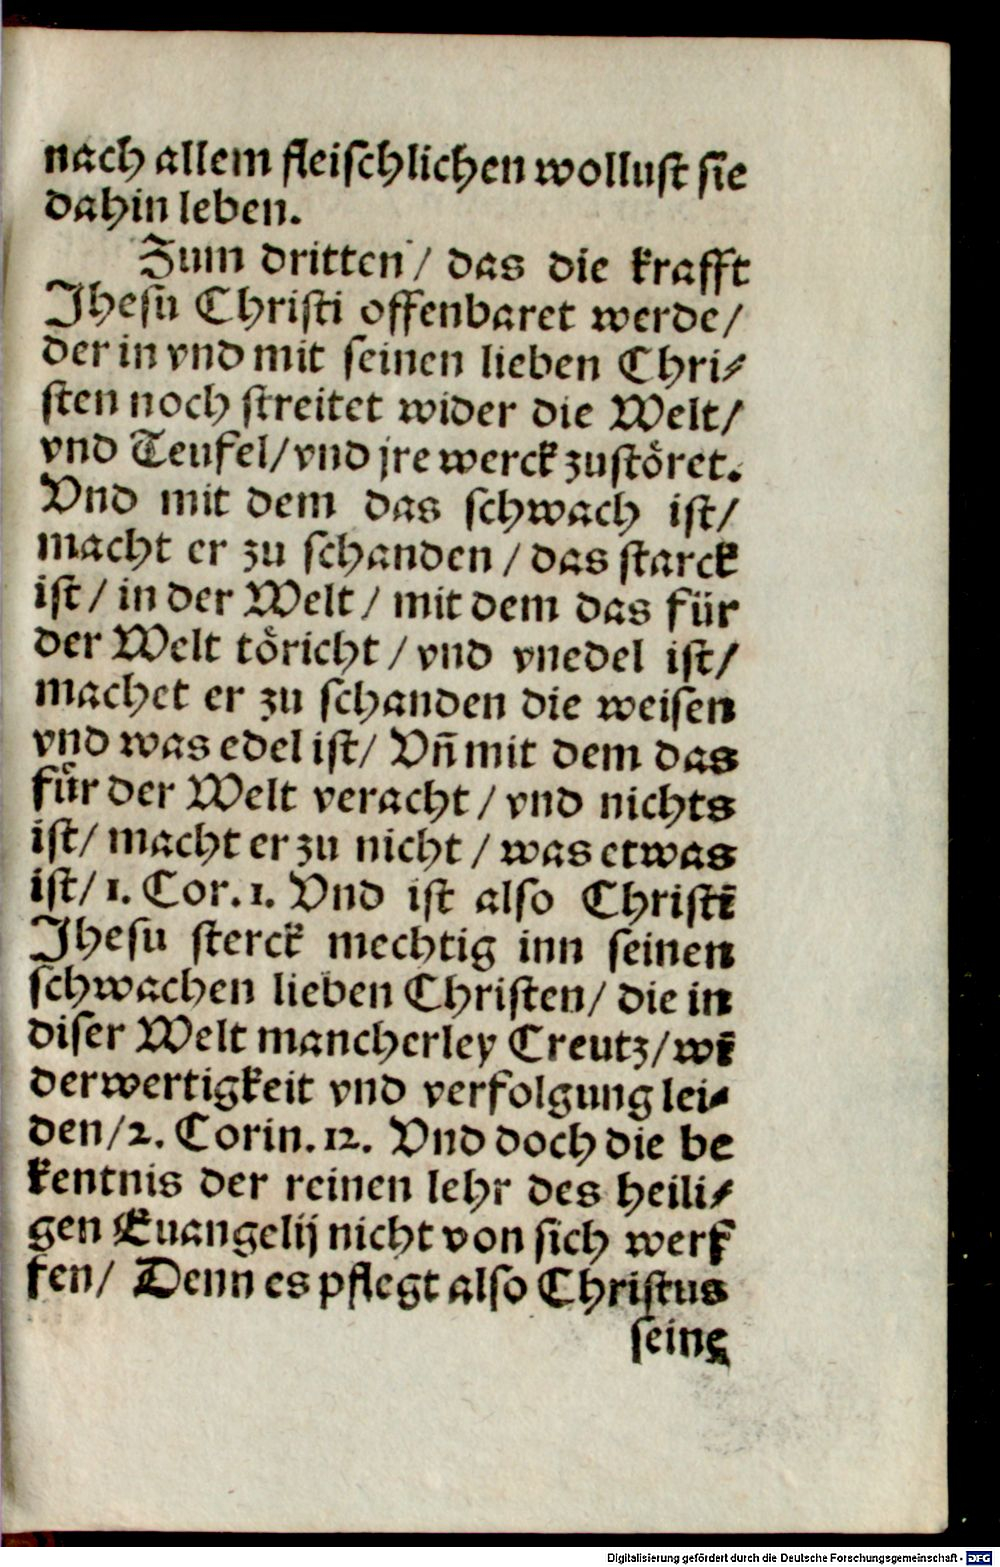 nach allem fleischlichen wollust sie
dahin leben.
Zum dritten / das die krafft
Jhesu Christi offenbaret werde /
der in vnd mit seinen lieben Chri⸗
sten noch streitet wider die Welt /
vnd Teufel / vnd jre werck zustöret.
Vnd mit dem das schwach ist /
macht er zu schanden / das starck
ist / in der Welt / mit dem das für
der Welt töricht / vnd vnedel ist /
machet er zu schanden die weisen
vnd was edel ist / Vñ mit dem das
für der Welt veracht / vnd nichts
ist / macht er zu nicht / was etwas
ist / 1. Cor. 1. Vnd ist also Christi
Jhesu sterck mechtig inn seinen
schwachen lieben Christen / die in
diser Welt mancherley Creutz / wi
derwertigkeit vnd verfolgung lei⸗
den / 2. Corin. 12. Vnd doch die be
kentnis der reinen lehr des heili⸗
gen Euangelij nicht von sich werf
fen / Denn es pflegt also Christus
seine
Digitalisierung gefördert durch die Deutsche Forschungsgemeinschaft - DFG